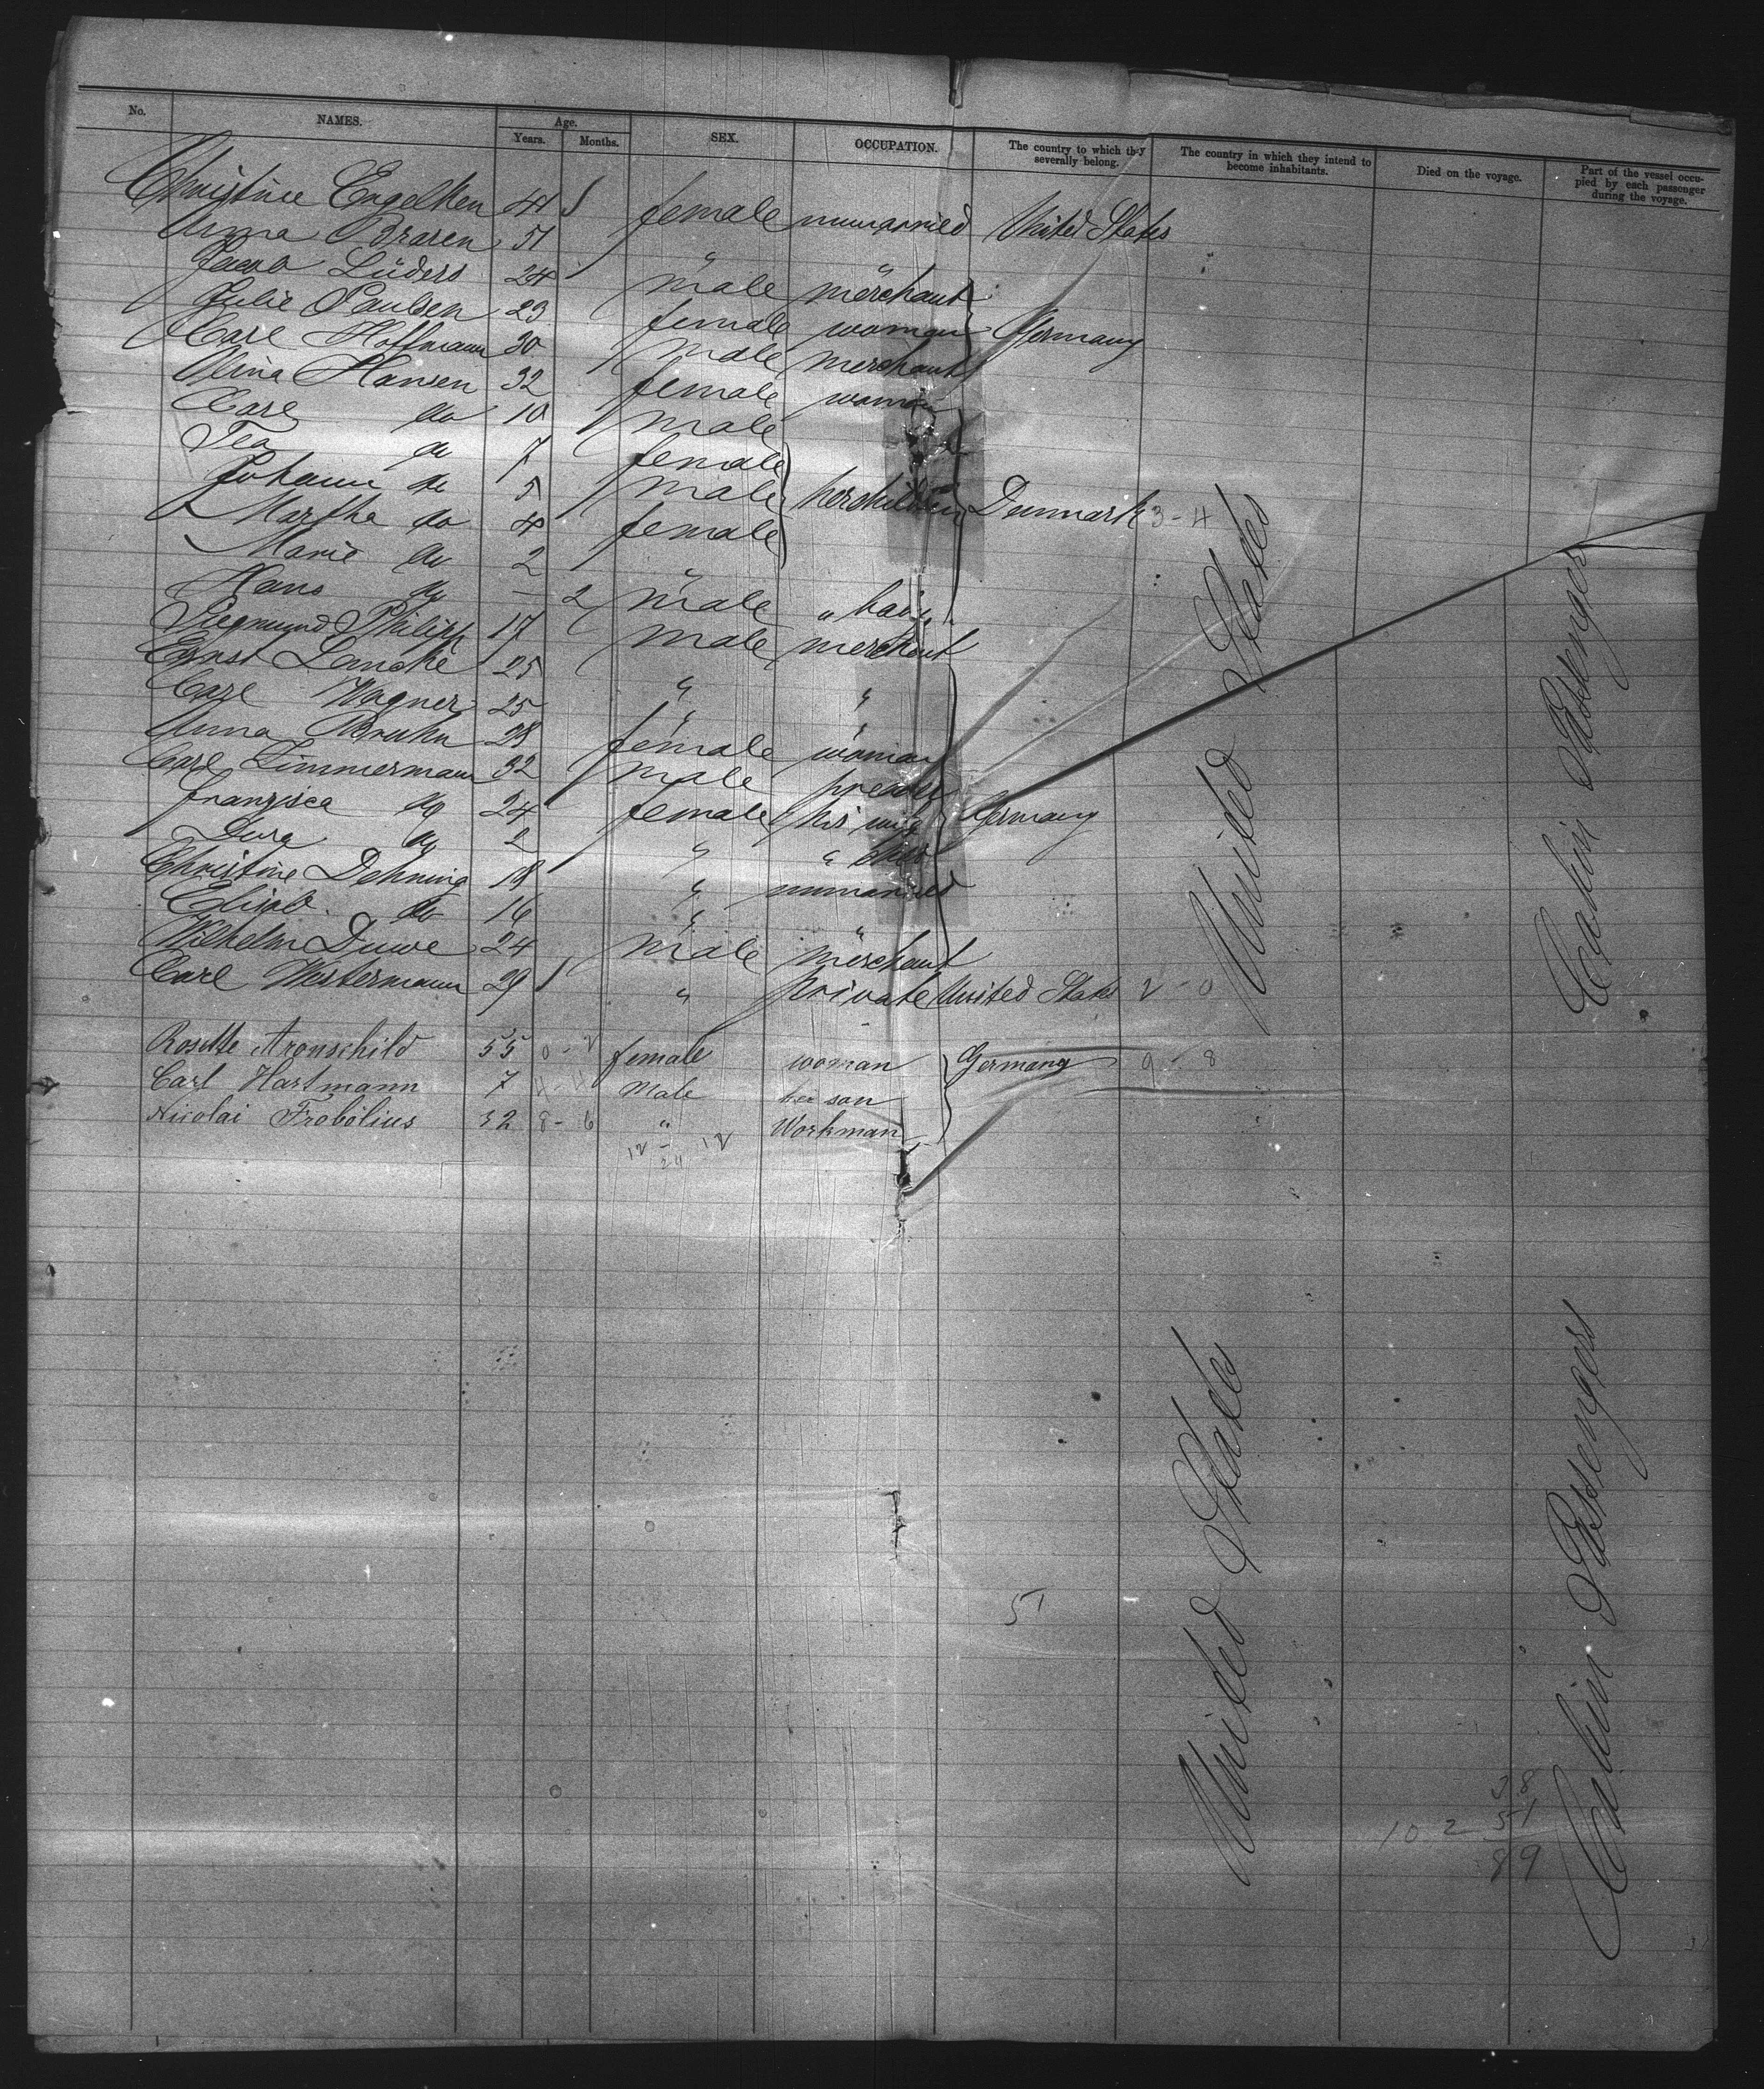 No. NAMES. Age. Years. Months. SEX. OCCUPATION. The country to which they severally belong. The country in which they intend to become inhabitants. Died on the voyage. Part of the vessel occupied by each passenger during the voyage.
Christine Engelken 41 female unmarried United States
Anna Braren 51 " "
Jacob Lüders 24 male merchant
Julie Paulsen 23 female woman Germany
Carl Hoffmann 30 male merchant
Alina Hansen 32 female woman
Carl do 10 male
Tea do 7 female
Johann do 5 male her children Denmark 3-4
Martha do 4 female
Marie do 2 "
Hans do — 2 male " baby
Siegmund Philipp 17 male merchant
Ernst 25 " "
Carl Wagner 25 " "
Anna Bruhn 28 female woman
Carl Zimmermann 32 male
Franzisca do 24 female his wife Germany
Dora do 2 " " child
Christine Dehning 18 " unmarried
Elisab. do 16 " "
Wilhelm Duwe 24 male merchant
Carl Westermann 29 " private United States 2-0
Rosette Aronschild 55 0-2 female woman Germany 9-8
Carl Hartmann 7 4-4 Male her son
Nicolai Frobölius 32 8-6 " Workman
12 - 12
24
United States
Cabin Passenger
United States
Cabin Passengers
51
38
10 2 51
89